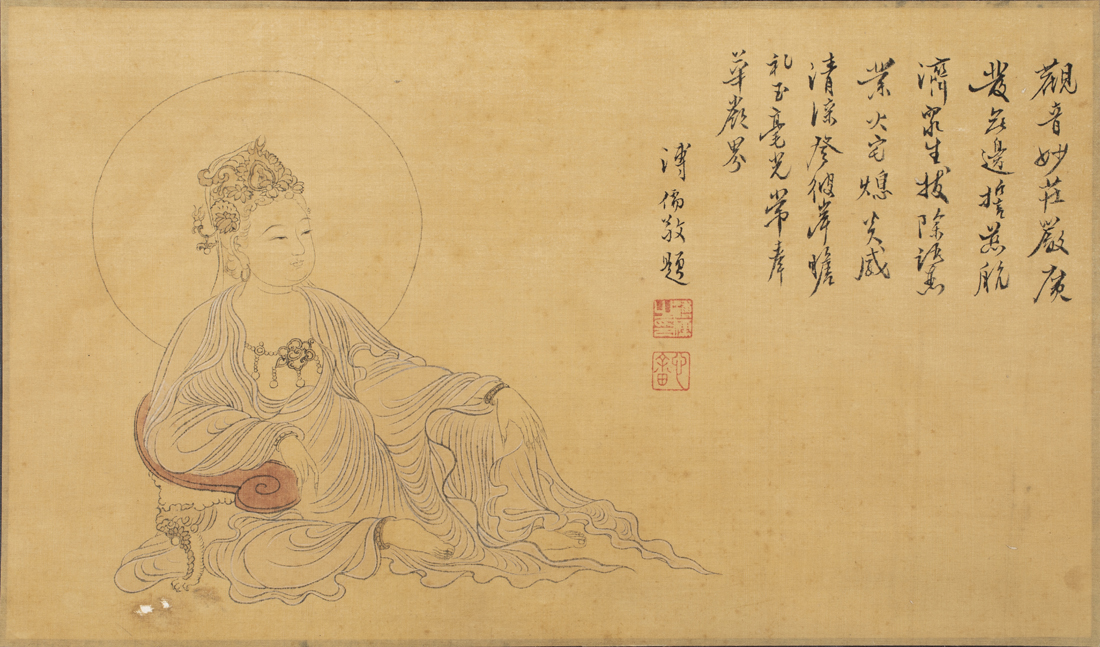 觀音妙莊嚴廣
發无邊誓慈航
濟眾生拔除諸惡
業火宅熄炎威
清涼登彼岸瞻
礼玉毫光常奉
華嚴界
溥儒敬題
心畬